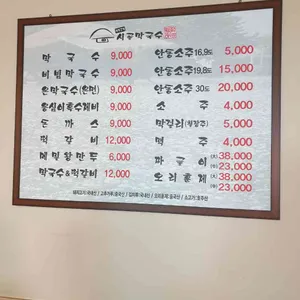 시골막국수
막국수 9,000
비빔막국수 9,000
온막국수(온면) 9,000
옹심이흑수제비 9,000
돈까스 9,000
떡갈비 12,000
메밀왕만두 6,000
막국수&떡갈비 12,000
안동소주16.9도 5,000
안동소주19.8도 15,000
안동소주30도 20,000
소주 4,000
막걸리 5,000
맥주 4,000
(大) 38,000
(中) 23,000
오리훈제 (大) 38,000
(中) 23,000